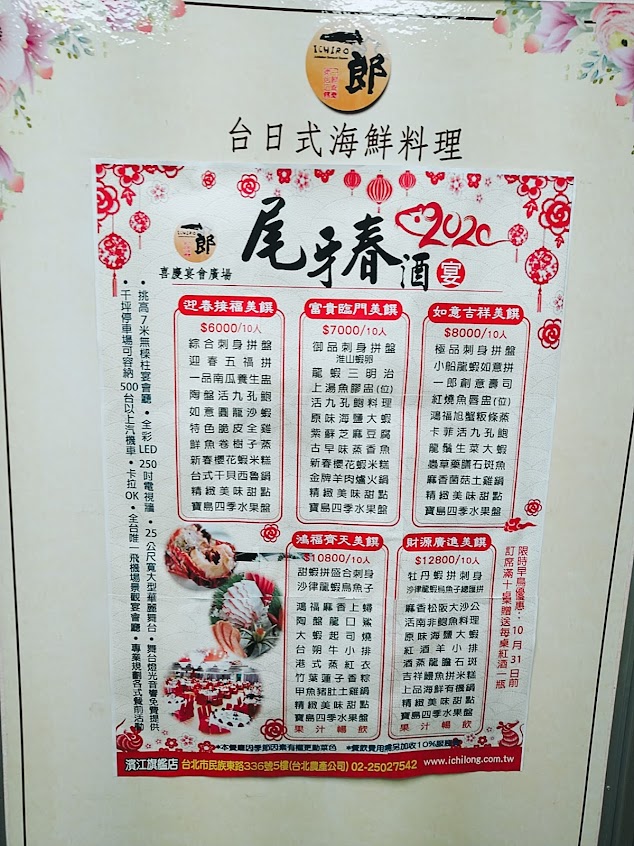 ICHIRO
一郎
台日式海鮮料理
ICHIRO
一郎
喜慶宴會廣場
尾牙春酒宴
2020
•挑高7米無樑柱宴會廳•全彩LED 250吋電視牆•25公尺寬大型華麗舞台•舞台燈光音響免費提供
•千坪停車場可容納500台以上汽機車•卡拉OK•全台唯一飛機場景觀宴會廳•專業規劃各式餐前活動
迎春接福美饌
$6000/10人
綜合刺身拼盤
迎春五福拼
一品南瓜養生盅
陶盤活九孔鮑
如意圓龍沙蝦
特色脆皮全雞
鮮魚卷樹子蒸
新春櫻花蝦米糕
台式干貝西魯鍋
精緻美味甜點
寶島四季水果盤
富貴臨門美饌
$7000/10人
御品刺身拼盤
淮山蝦卵
龍蝦三明治
上湯魚膠盅(位)
活九孔鮑料理
原味海鹽大蝦
紫蘇芝麻豆腐
古早味蒸香魚
新春櫻花蝦米糕
金牌羊肉爐火鍋
精緻美味甜點
寶島四季水果盤
如意吉祥美饌
$8000/10人
極品刺身拼盤
小船龍蝦如意拼
一郎創意壽司
紅燒魚唇盅(位)
鴻福旭蟹粄條蒸
卡菲活九孔鮑
龍鬚生菜大蝦
蟲草藥膳石斑魚
麻香菌菇土雞鍋
精緻美味甜點
寶島四季水果盤
鴻福齊天美饌
$10800/10人
甜蝦拼盛合刺身
沙律龍蝦烏魚子
鴻福麻香上蟳
陶盤龍口鯊
大蝦起司燒
台朔牛小排
港式蒸紅衣
竹葉蓮子香粽
甲魚豬肚土雞鍋
精緻美味甜點
寶島四季水果盤
果汁暢飲
財源廣進美饌
$12800/10人
牡丹蝦拼刺身
沙律龍蝦烏魚子總匯拼
麻香松阪大沙公
活南非鮑魚料理
原味海鹽大蝦
紅酒羊小排
酒蒸龍膽石斑
吉祥鰻魚拼米糕
上品海鮮有機鍋
精緻美味甜點
寶島四季水果盤
果汁暢飲
限時早鳥優惠：10月31日前
訂席滿十桌贈送每桌紅酒一瓶
*本餐單因季節因素有權更動菜色 *餐飲費用總另加收10%服務費
濱江旗艦店 台北市民族東路336號5樓(台北農產公司) 02-25027542 www.ichilong.com.tw